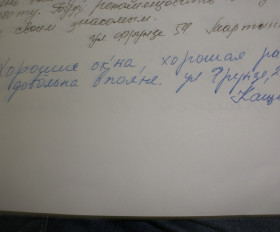 своим знакомым.
ул Фрунзе 54 Мартын
Хорошие окна, хорошая ра
довольна вполне. ул Фрунзе,
Кащ